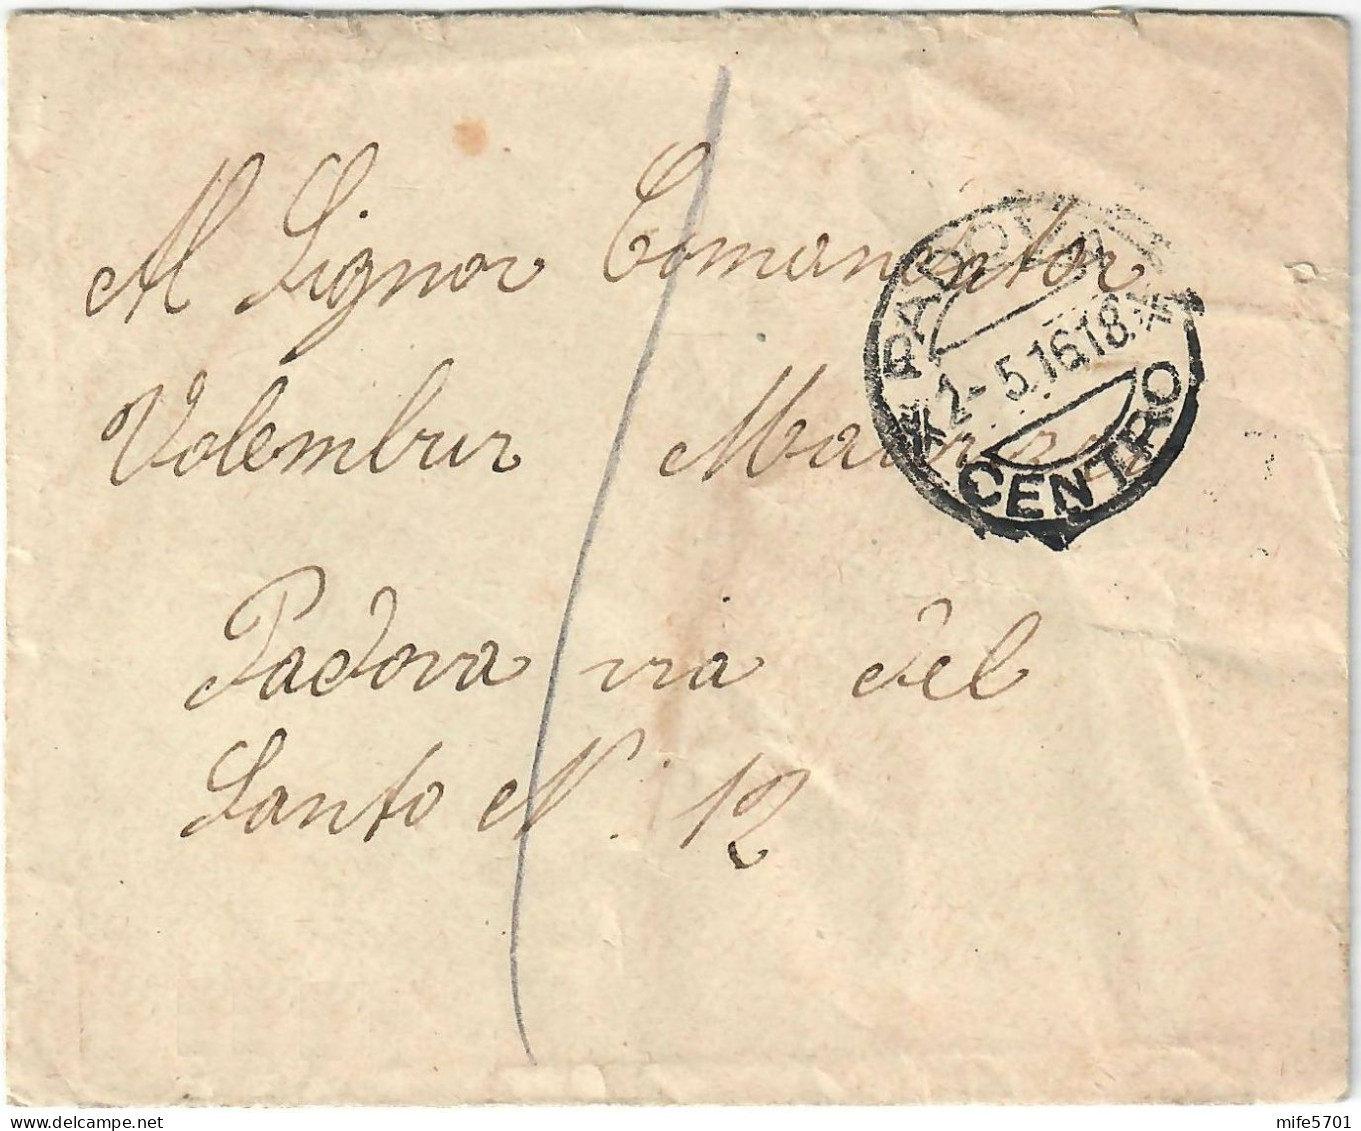 Al Signor Comanintor
Volembur
Padova via del
Santo N. 12
PADOVA
2-5.16.18
CENTRO
delcampe.net
mife5701